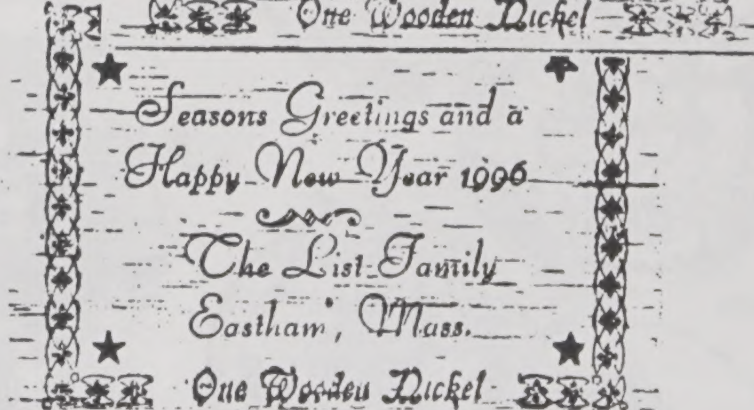 One Wooden Nickel
Seasons Greetings and a
Happy New Year 1996
The List Family
Eastham, Mass.
One Wooden Nickel